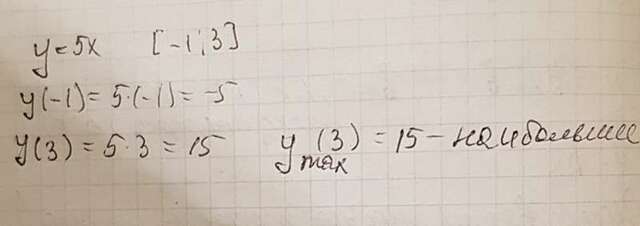 y = 5x [-1; 3]
y(-1) = 5·(-1) = -5
y(3) = 5·3 = 15 y max (3) = 15 - наибольшее